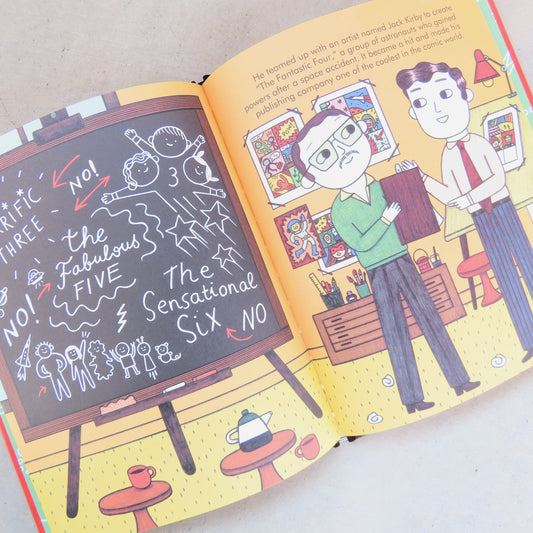 RIFIC
THREE
NO!
the
Fabulous
FIVE
NO!
The
Sensational
Six
NO
He teamed up with an artist named Jack Kirby to create
"The Fantastic Four," a group of astronauts who gained
powers after a space accident. It became a hit and made his
publishing company one of the coolest in the comic world.